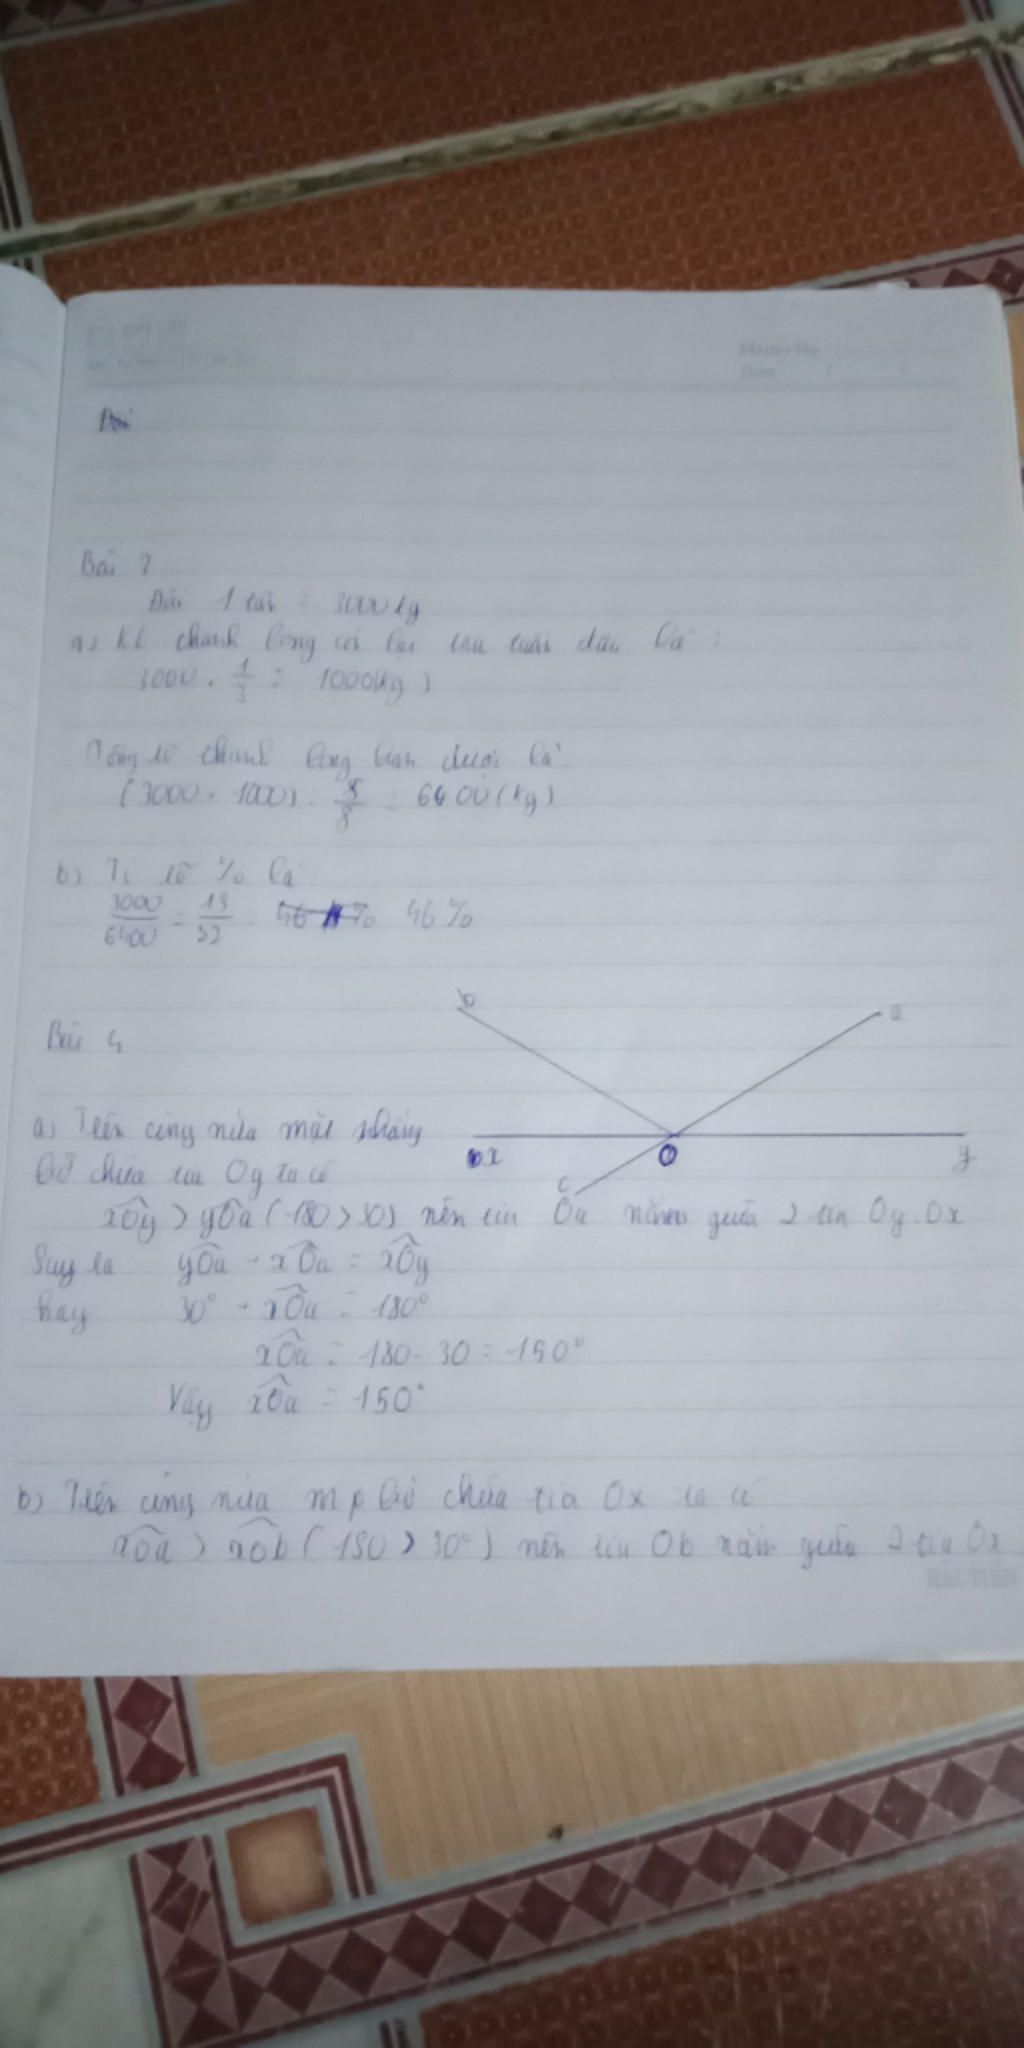 Bài
Bài ?
Đổi 1 tấn = 3000 kg
a) KL chanh long còn lại sau tuần đầu là :
3000 . 1/3 = 1000(kg)
Tổng số chanh long bán được là
(3000 + 1000) : 5/8 = 6400 (kg)
b) Tỉ số % là
3000/6400 = 15/32 = 46 % 46 %
b
a
Bài 4
a) Trên cùng nửa mặt phẳng
x O y
bờ chứa tia Oy ta có
c
xOy > yOa (180 > 30) nên tia Oa nằm giữa 2 tia Oy. Ox
Suy ra yOa + xOa = xOy
hay 30° + xOa = 180°
xOa = 180 - 30 = 150°
Vậy xOa = 150°
b) Trên cùng nửa mp bờ chứa tia Ox ta có
xOa > xOb (150 > 30°) nên tia Ob nằm giữa 2 tia Ox
HẢI TIẾN